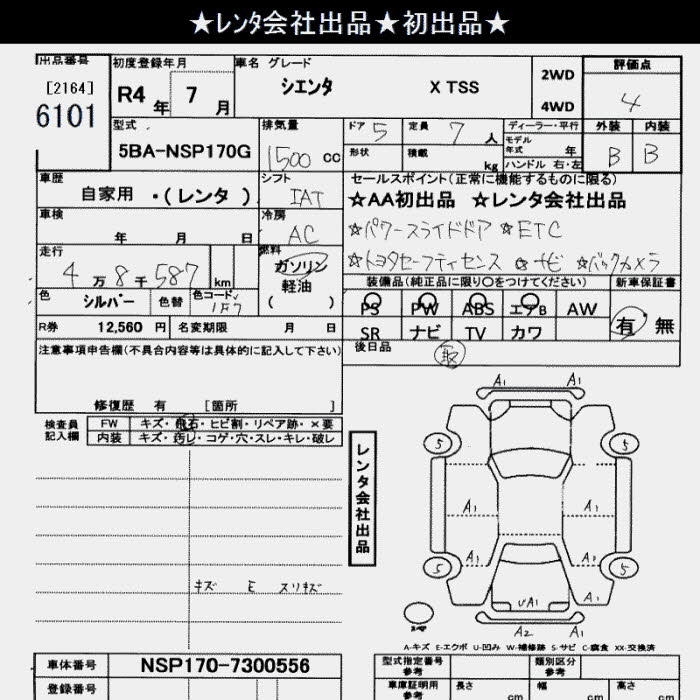 ★レンタ会社出品★初出品★
出品番号 初度登録年月 車名 グレード 評価点
[2164]
6101
R4年 7月 シエンタ X TSS 2WD 4WD 4
型式 排気量 ドア 5 定員 7人 ディーラー・平行 外装 内装
5BA-NSP170G 1500 cc 形状 積載 kg モデル年式 年 B B
ハンドル 右・左
車歴 シフト セールスポイント(正常に機能するものに限る)
自家用 ・(レンタ ) IAT ★AA初出品 ★レンタ会社出品
車検 冷房 ☆パワースライドドア ☆ETC
年 月 日 AC
走行 燃料 ☆トヨタセーフティセンス ☆ナビ ☆バックカメラ
4万8千587 km ガソリン 軽油 ( )
装備品(純正品に限り○をつけてください) 新車保証書
色 シルバー 色替 色コード 1F7
PS PW ABS エアB AW 有 無
R券 12,560 円 名変期限 月 日 SR ナビ TV カワ
注意事項申告欄(不具合内容等は具体的に記入して下さい) 後日品 取
修復歴 有 [箇所 ]
検査員記入欄 FW キズ・飛石・ヒビ割・リペア跡・×要
内装 キズ・汚レ・コゲ・穴・スレ・キレ・破レ
レンタ会社出品
A1 A1
5 5
A1 A1
A1 A1
5 5
A1 UA1 A1
A2 A1
キズ E スリキズ
A-キズ E-エクボ U-凹み W-補修跡 S-サビ C-腐食 XX-交換済
車体番号 NSP170-7300556 型式指定番号 参考 類別区分 参考
登録番号 車庫証明用 参考 長さ cm 幅 cm 高さ cm